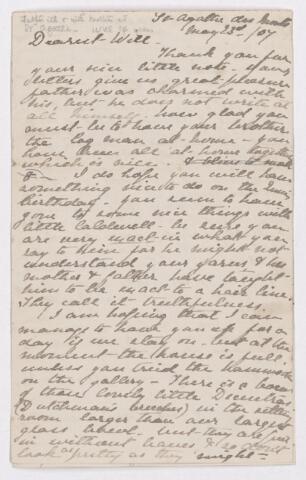 Ste Agathe des Monts
May 23rd /07
Dearest Will -
Thank you for
your nice little note - your
letters give us great pleasure
father was charmed with
his, but he does not write at
all himself. How glad you
must be to have your brother
the log man at home - you
have three all at home together
which is nice
& I do hope you will have
something nice to do on the Queen's
birthday - you seem to have
gone to some nice things with
little Caldwell - be sure you
are very exact in what you
say to him for he might not
understand your yarns & his
mother & father have taught
him to be exact to a hair line.
They call it truthfulness.
I am hoping that I can
manage to have you up for a
day if we stay on - but at the
moment the house is full
unless you tried the hammock
on the gallery - There is a
of those lovely little Dicentras
(Dutchman's breeches) in the sitting
room larger than our largest
glass bowl - but they are put
in without leaves & so do not
look as pretty as they might -